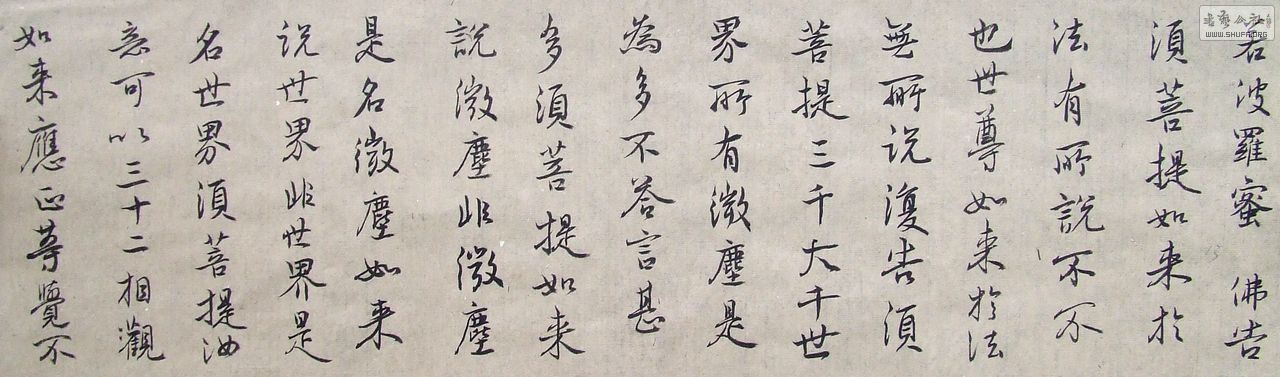 若波羅蜜 佛告
須菩提如来於
法有所說不不
也世尊如来於法
無所説復告須
菩提三千大千世
界所有微塵是
為多不答言甚
多須菩提如来
說微塵非微塵
是名微塵如来
説世界非世界是
名世界須菩提汝
意可以三十二相觀
如来應正等覺不
書藝公社
WWW.SHUFA.ORG